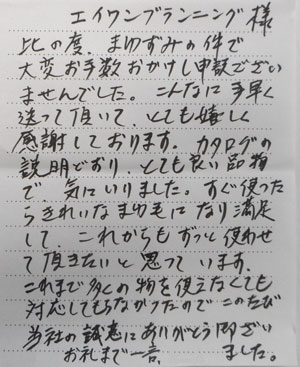 エイワンプランニング様
此の度、まゆずみの件で
大変お手数おかけし申訳ござい
ませんでした。こんなに手早く
送って頂いて、とても嬉しく
感謝しております。カタログの
説明どおり、とても良い品物
で、気にいりました。すぐ使った
らきれいなまゆ毛になり満足
して、これからもずっと使わせ
て頂きたいと思っています。
これまで多くの物を使えなくても
対応してもらえなかったのでこのたび
当社の誠意にありがとう御ざい
お礼まで一言、ました。